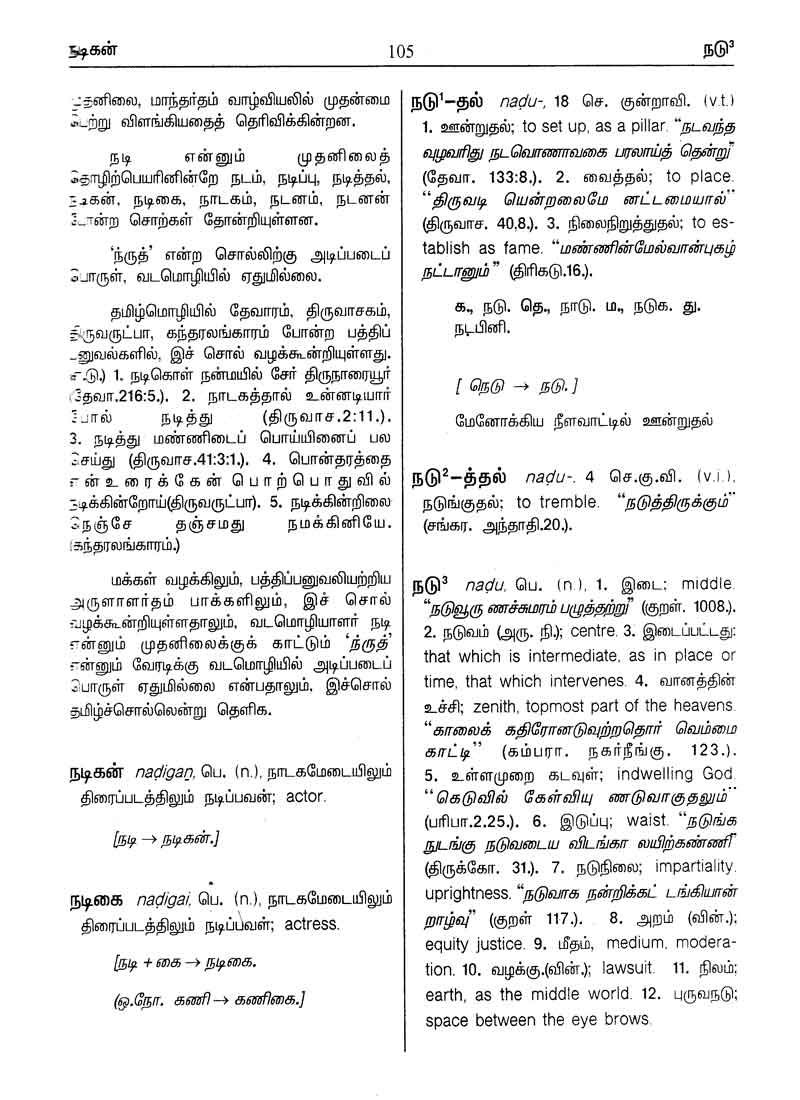 நடிகன்
105
நடு³
முதனிலை, மாந்தர்தம் வாழ்வியலில் முதன்மை
பெற்று விளங்கியதைத் தெரிவிக்கின்றன.
நடி என்னும் முதனிலைத்
தொழிற்பெயரினின்றே நடம், நடிப்பு, நடித்தல்,
நடிகன், நடிகை, நாடகம், நடனம், நடனன்
போன்ற சொற்கள் தோன்றியுள்ளன.
‘ந்ருத்’ என்ற சொல்லிற்கு அடிப்படைப்
பொருள், வடமொழியில் ஏதுமில்லை.
தமிழ்மொழியில் தேவாரம், திருவாசகம்,
திருவருட்பா, கந்தரலங்காரம் போன்ற பத்திப்
பனுவல்களில், இச் சொல் வழக்கூன்றியுள்ளது.
எ.டு.) 1. நடிகொள் நன்மயில் சேர் திருநாரையூர்
(தேவா.216:5.). 2. நாடகத்தால் உன்னடியார்
போல் நடித்து (திருவாச.2:11.).
3. நடித்து மண்ணிடைப் பொய்யினைப் பல
செய்து (திருவாச.41:3:1,). 4. பொன்தரத்தை
என் உரைக்கேன் பொற்பொதுவில்
நடிக்கின்றோய்(திருவருட்பா). 5. நடிக்கின்றிலை
நெஞ்சே தஞ்சமது நமக்கினியே.
(கந்தரலங்காரம்.)
மக்கள் வழக்கிலும், பத்திப்பனுவலியற்றிய
அருளாளர்தம் பாக்களிலும், இச் சொல்
வழக்கூன்றியுள்ளதாலும், வடமொழியாளர் நடி
என்னும் முதனிலைக்குக் காட்டும் ‘ந்ருத்’
என்னும் வேரடிக்கு வடமொழியில் அடிப்படைப்
பொருள் ஏதுமில்லை என்பதாலும், இச்சொல்
தமிழ்ச்சொல்லென்று தெளிக.
நடிகன் naḍigaṉ, பெ. (n.), நாடகமேடையிலும்
திரைப்படத்திலும் நடிப்பவன்; actor.
[நடி → நடிகன்.]
நடிகை naḍigai, பெ. (n.), நாடகமேடையிலும்
திரைப்படத்திலும் நடிப்பவள்; actress.
[நடி + கை → நடிகை.
(ஒ.நோ. கணி → கணிகை.]
நடு¹-தல் naḍu-, 18 செ. குன்றாவி. (v.t.)
1. ஊன்றுதல்; to set up, as a pillar. “நடவந்த
வுழவரிது நடவொணாவகை பரலாய்த் தென்று”
(தேவா. 133:8.). 2. வைத்தல்; to place.
“திருவடி யென்றலைமே னட்டமையால்”
(திருவாச. 40,8.). 3. நிலைநிறுத்துதல்; to es-
tablish as fame. “மண்ணின்மேல்வான்புகழ்
நட்டானும்” (திரிகடு.16.).
க., நடு. தெ., நாடு. ம., நடுக. து.
நடபினி.
[ நெடு → நடு. ]
மேனோக்கிய நீளவாட்டில் ஊன்றுதல்
நடு²-த்தல் naḍu-, 4 செ.கு.வி. (v.i.),
நடுங்குதல்; to tremble. “நடுத்திருக்கும்”
(சங்கர. அந்தாதி.20.).
நடு³ naḍu, பெ. (n.), 1. இடை; middle.
“நடுவூரு ணச்சுமரம் பழுத்தற்று” (குறள். 1008.).
2. நடுவம் (அரு. நி.); centre. 3. இடைப்பட்டது;
that which is intermediate, as in place or
time, that which intervenes. 4. வானத்தின்
உச்சி; zenith, topmost part of the heavens.
“காலைக் கதிரோனடுவுற்றதொர் வெம்மை
காட்டி” (கம்பரா. நகர்நீங்கு. 123.).
5. உள்ளமுறை கடவுள்; indwelling God.
“கெடுவில் கேள்வியு ணடுவாகுதலும்”
(பரிபா.2.25.). 6. இடுப்பு; waist. “நடுங்க
நுடங்கு நடுவடைய விடங்கா லயிற்கண்ணி”
(திருக்கோ. 31.). 7. நடுநிலை; impartiality.
uprightness. “நடுவாக நன்றிக்கட் டங்கியான்
றாழ்வு” (குறள் 117.). 8. அறம் (வின்.);
equity justice. 9. மீதம், medium, modera-
tion. 10. வழக்கு.(வின்.); lawsuit. 11. நிலம்;
earth, as the middle world. 12. புருவநடு;
space between the eye brows.